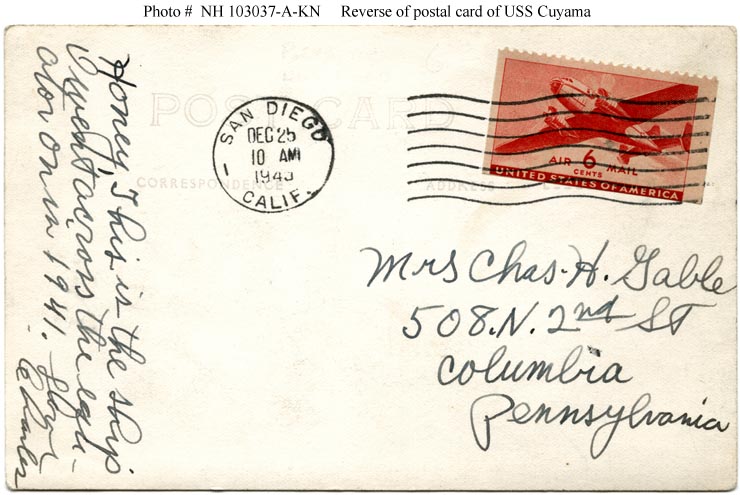 Photo # NH 103037-A-KN Reverse of postal card of USS Cuyama
POST CARD
CORRESPONDENCE
ADDRESS
SAN DIEGO
DEC 25
10 AM
1
CALIF.
AIR 6 MAIL
CENTS
UNITED STATES OF AMERICA
Honey, This is the ship
I went across the equ-
ator on in 1941.
Charles
Mrs Chas. H. Gable
508. N. 2nd ST
Columbia
Pennsylvania